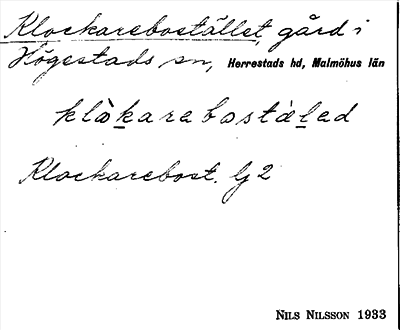 Klockarebostället, gård i
Högestads sn, Herrestads hd, Malmöhus län
klòkarebostàled
Klockarebost. Gj 2
NILS NILSSON 1933